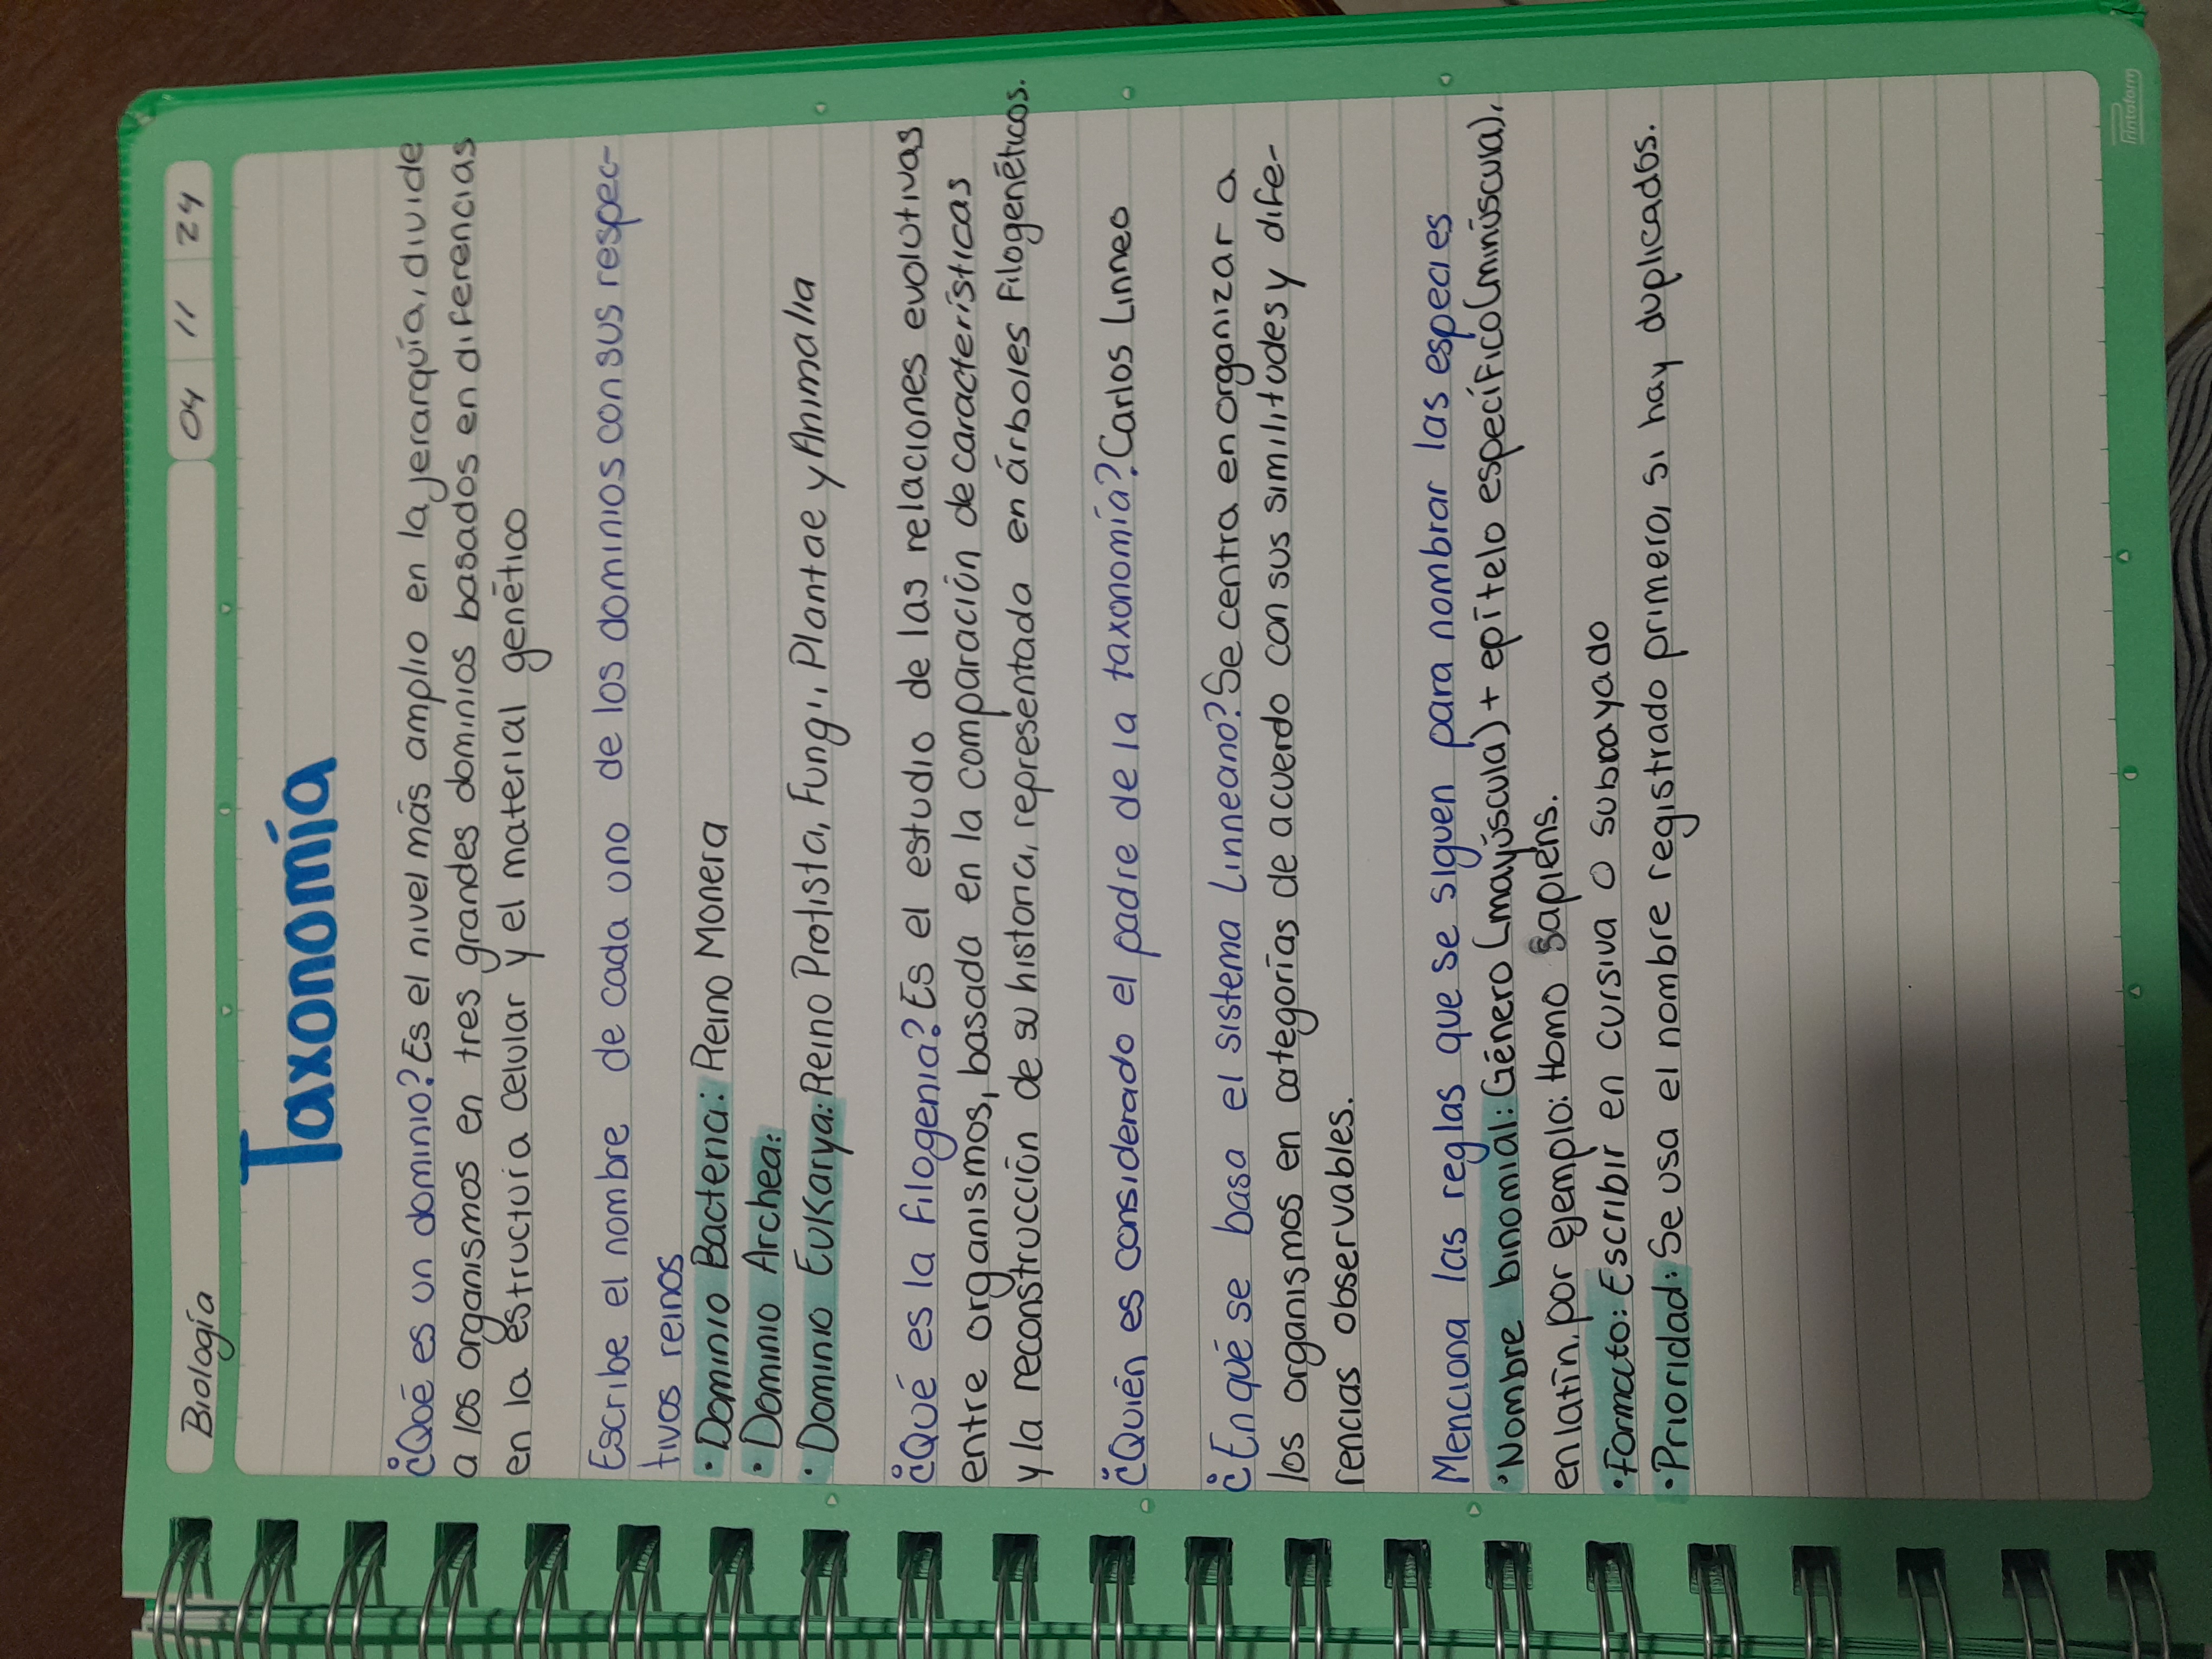 Biología 04 11 24
Taxonomía
¿Qué es un dominio? Es el nivel más amplio en la jerarquía, divide
a los organismos en tres grandes dominios basados en diferencias
en la estructura celular y el material genético
Escribe el nombre de cada uno de los dominios con sus respec-
tivos reinos
• Dominio Bacteria: Reino Monera
• Dominio Archea:
• Dominio Eukarya: Reino Protista, Fungi, Plantae y Animalia
¿Qué es la Filogenia? Es el estudio de las relaciones evolutivas
entre organismos, basada en la comparación de características
y la reconstrucción de su historia, representada en árboles Filogenéticos.
¿Quién es considerado el padre de la taxonomía? Carlos Linneo
¿En qué se basa el sistema Linneano? Se centra en organizar a
los organismos en categorías de acuerdo con sus similitudes y dife-
rencias observables.
Menciona las reglas que se siguen para nombrar las especies
• Nombre binomial: Género (mayúscula) + epítelo específico (minúscula),
en latín, por ejemplo: Homo sapiens.
• Formato: Escribir en cursiva o subrayado
• Prioridad: Se usa el nombre registrado primero, si hay duplicados.
Printaform